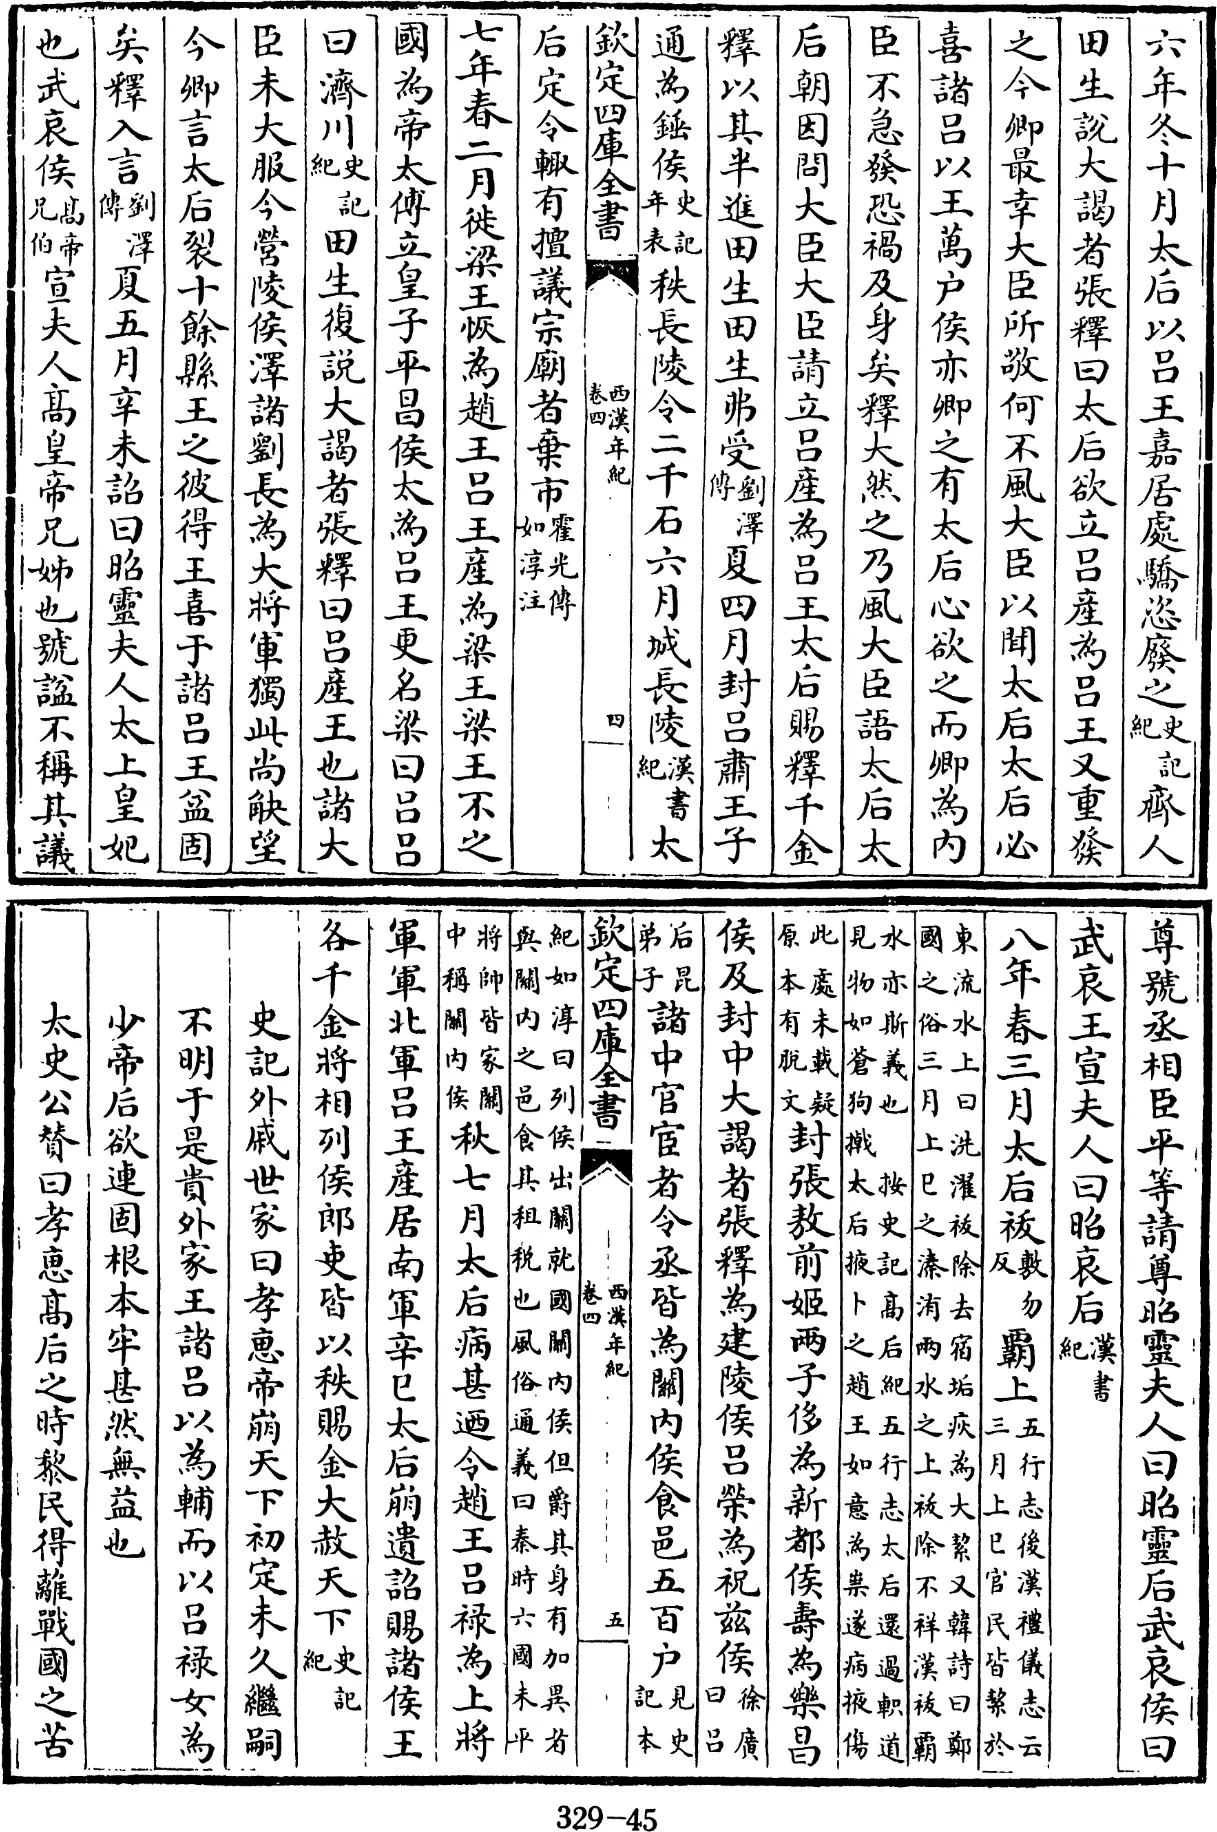 六年冬十月太后以吕王嘉居處驕恣廢之史記紀齊人
田生説大謁者張釋曰太后欲立吕産為吕王又重發
之今卿最幸大臣所敬何不風大臣以聞太后太后必
喜諸吕以王萬户侯亦卿之有太后心欲之而卿為内
臣不急發恐禍及身矣釋大然之乃風大臣語太后太
后朝因問大臣大臣請立吕産為吕王太后賜釋千金
釋以其半進田生田生弗受劉澤傳夏四月封吕肅王子
通為錘侯史記年表秩長陵令二千石六月城長陵漢書紀太
欽定四庫全書 西漢年紀卷四 四
后定令輙有擅議宗廟者棄市霍光傳如淳注
七年春二月徙梁王恢為趙王吕王産為梁王梁王不之
國為帝太傅立皇子平昌侯太為吕王更名梁曰吕吕
曰濟川史記紀田生復説大謁者張釋曰吕産王也諸大
臣未大服今營陵侯澤諸劉長為大將軍獨此尚觖望
今卿言太后裂十餘縣王之彼得王喜于諸吕王益固
矣釋入言劉澤傳夏五月辛未詔曰昭靈夫人太上皇妃
也武哀侯高帝兄伯宣夫人高皇帝兄姊也號諡不稱其議
尊號丞相臣平等請尊昭靈夫人曰昭靈后武哀侯曰
武哀王宣夫人曰昭哀后漢書紀
八年春三月太后祓敷勿反覇上五行志後漢禮儀志云三月上巳官民皆絜於
東流水上曰洗濯祓除去宿垢疢為大絜又韓詩曰鄭國之俗三月上巳之溱洧兩水之上祓除不祥漢祓覇
水亦斯義也 按史記高后紀五行志太后還過軹道見物如蒼狗橶太后掖卜之趙王如意為祟遂病掖傷
此處未載疑原本有脱文封張敖前姬兩子侈為新都侯壽為樂昌
侯及封中大謁者張釋為建陵侯吕榮為祝兹侯徐廣曰吕
后昆弟子諸中官宦者令丞皆為關内侯食邑五百户見史記本
欽定四庫全書 西漢年紀卷四 五
紀如淳曰列侯出關就國關内侯但爵其身有加異者與關内之邑食其租税也風俗通義曰秦時六國未平
將帥皆家關中稱關内侯秋七月太后病甚迺令趙王吕禄為上將
軍軍北軍吕王産居南軍辛巳太后崩遺詔賜諸侯王
各千金將相列侯郎吏皆以秩賜金大赦天下史記紀
史記外戚世家曰孝惠帝崩天下初定未久繼嗣
不明于是貴外家王諸吕以為輔而以吕禄女為
少帝后欲連固根本牢甚然無益也
太史公賛曰孝惠高后之時黎民得離戰國之苦
329-45